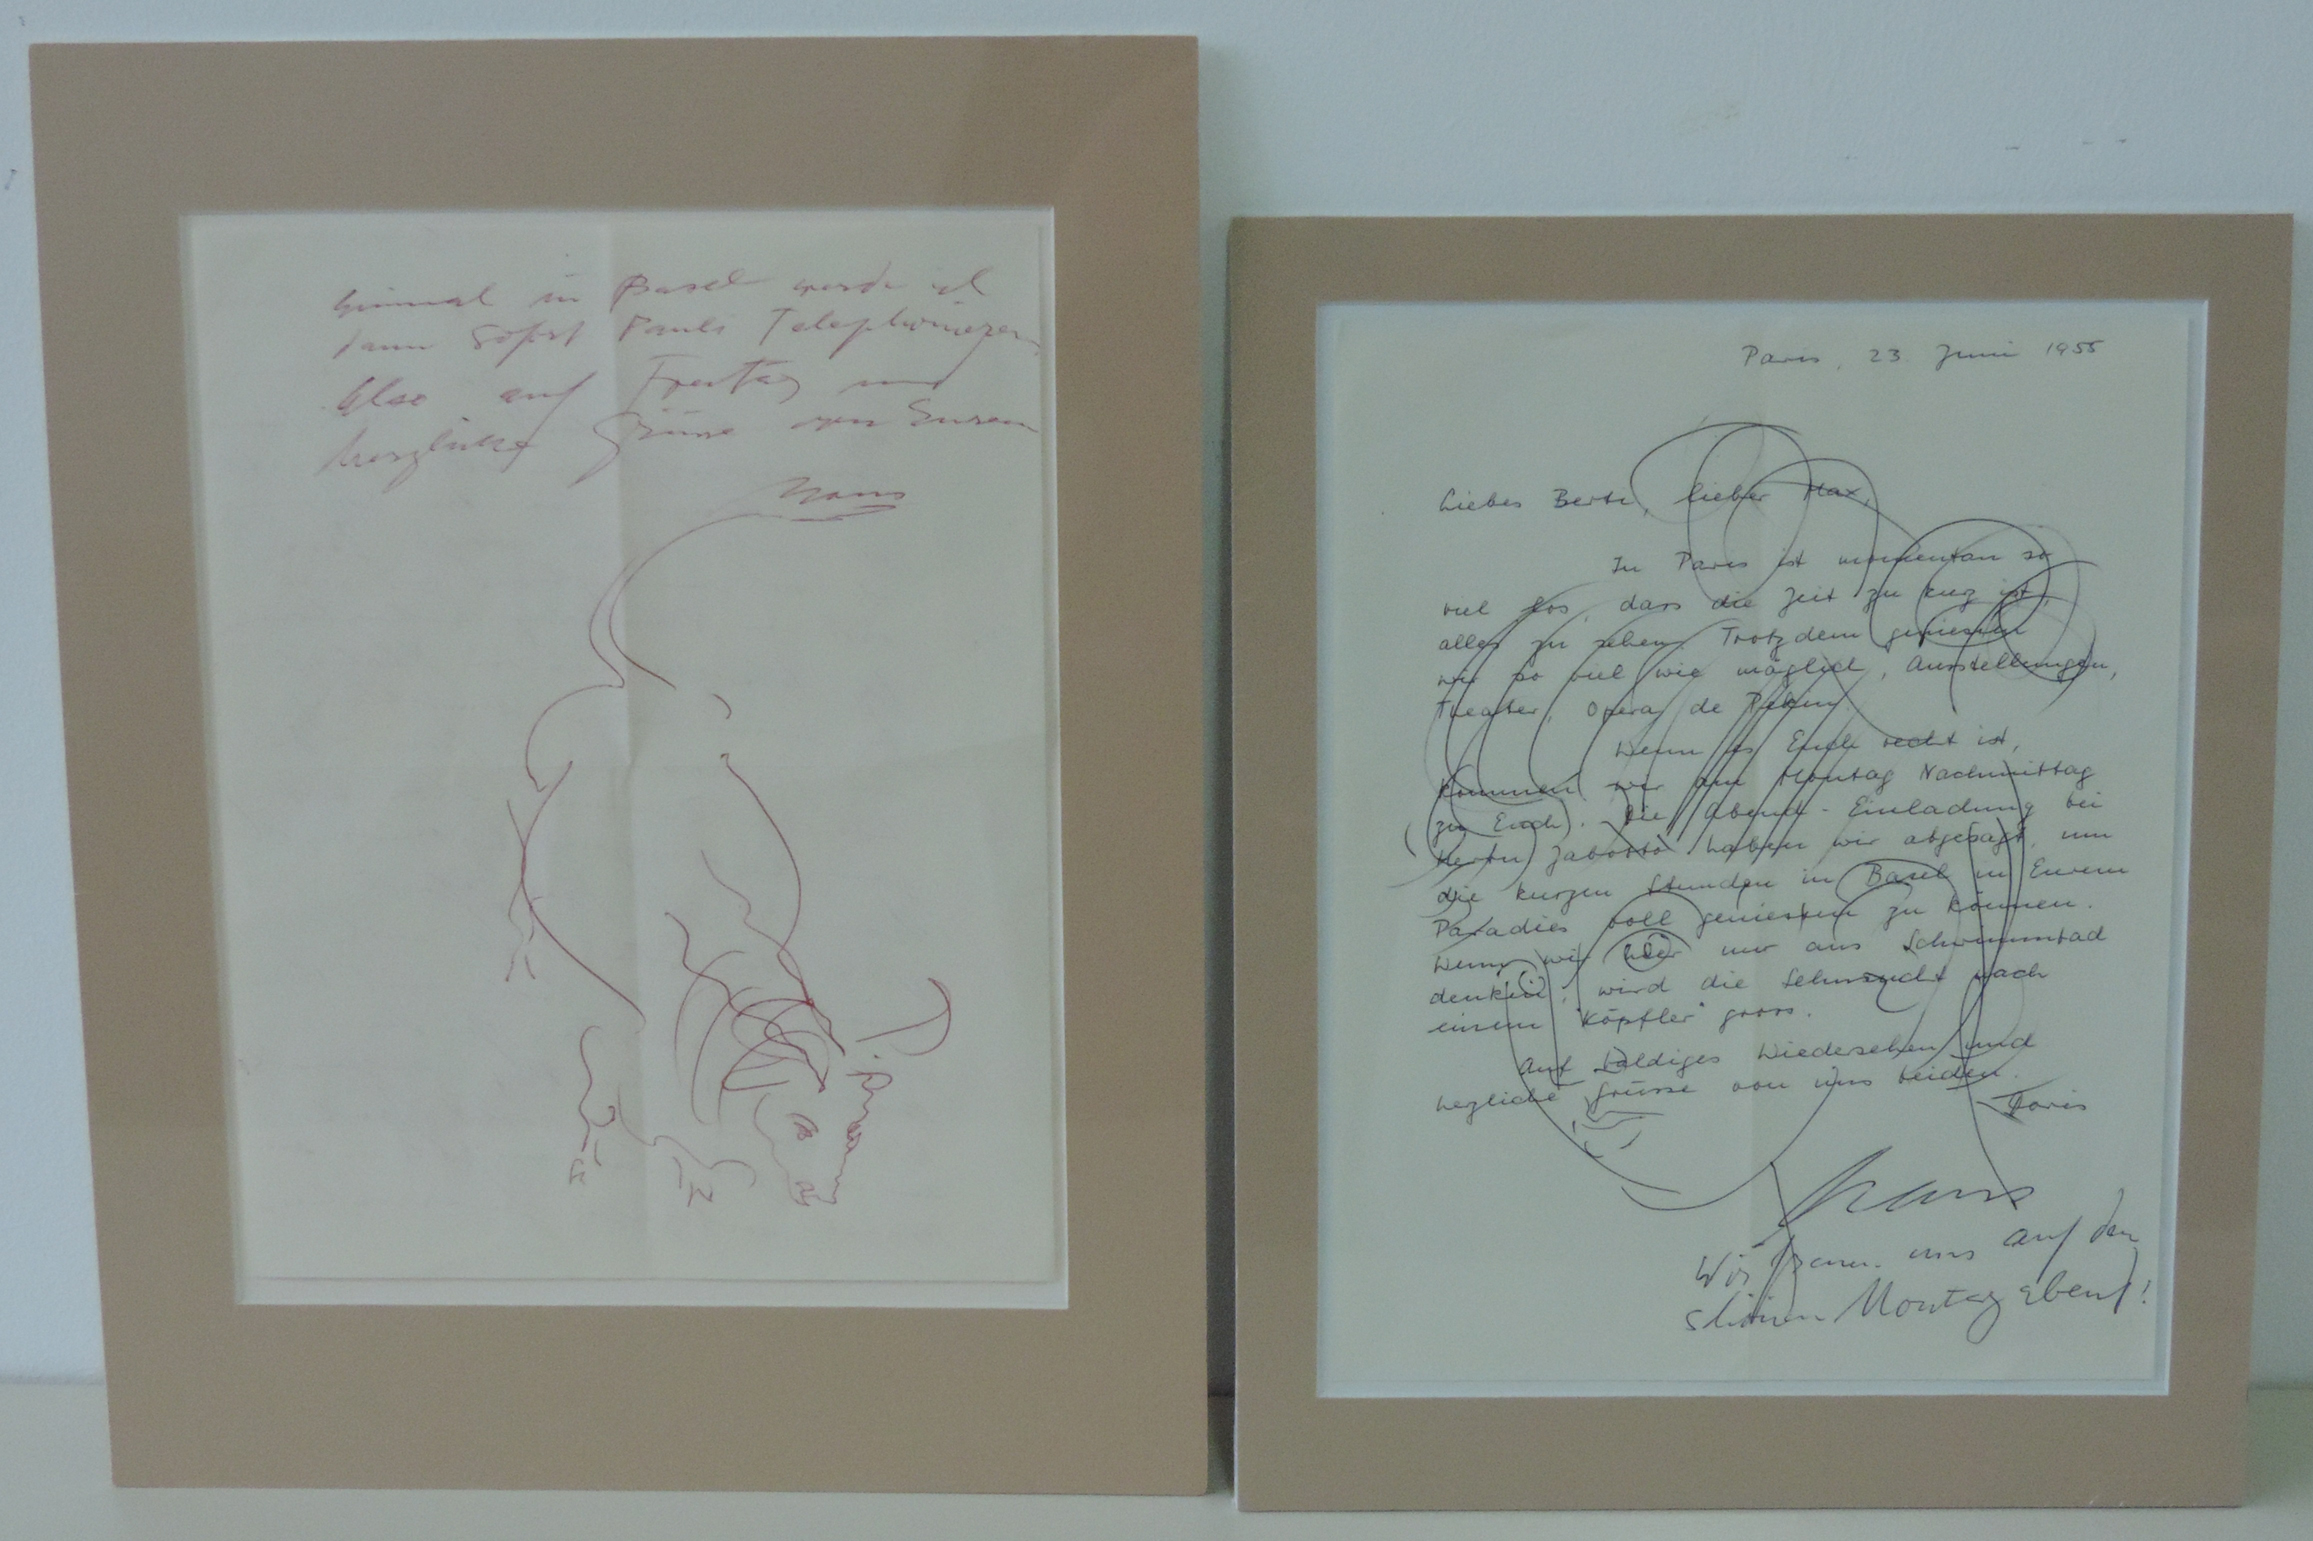 einmal in Basel werde ich
dann sofort Pauli Telephonieren.
Also auf Freitag und
herzliche Grüsse von Eurem
Hans
Paris, 23 Juni 1955
Liebes Berti, lieber Max,
In Paris ist momentan so
viel los, dass die Zeit zu kurz ist,
alles zu sehen. Trotzdem geniessen
wir so viel wie möglich, Ausstellungen,
Theater, Opera de Pekin.
Wenn es Euch recht ist,
kommen wir am Montag Nachmittag
zu Euch. Die Abend-Einladung bei
haben wir abgesagt, um
die kurzen Stunden in Basel in Eurem
Paradies voll geniessen zu können.
Wenn wir hier nur ans Schwimmbad
denken, wird die Sehnsucht nach
einem "Köpfler" gross.
Auf baldiges Wiedersehen und
herzliche Grüsse von uns beiden.
Doris
Hans
Wir freuen uns auf den
schönen Montag abend!